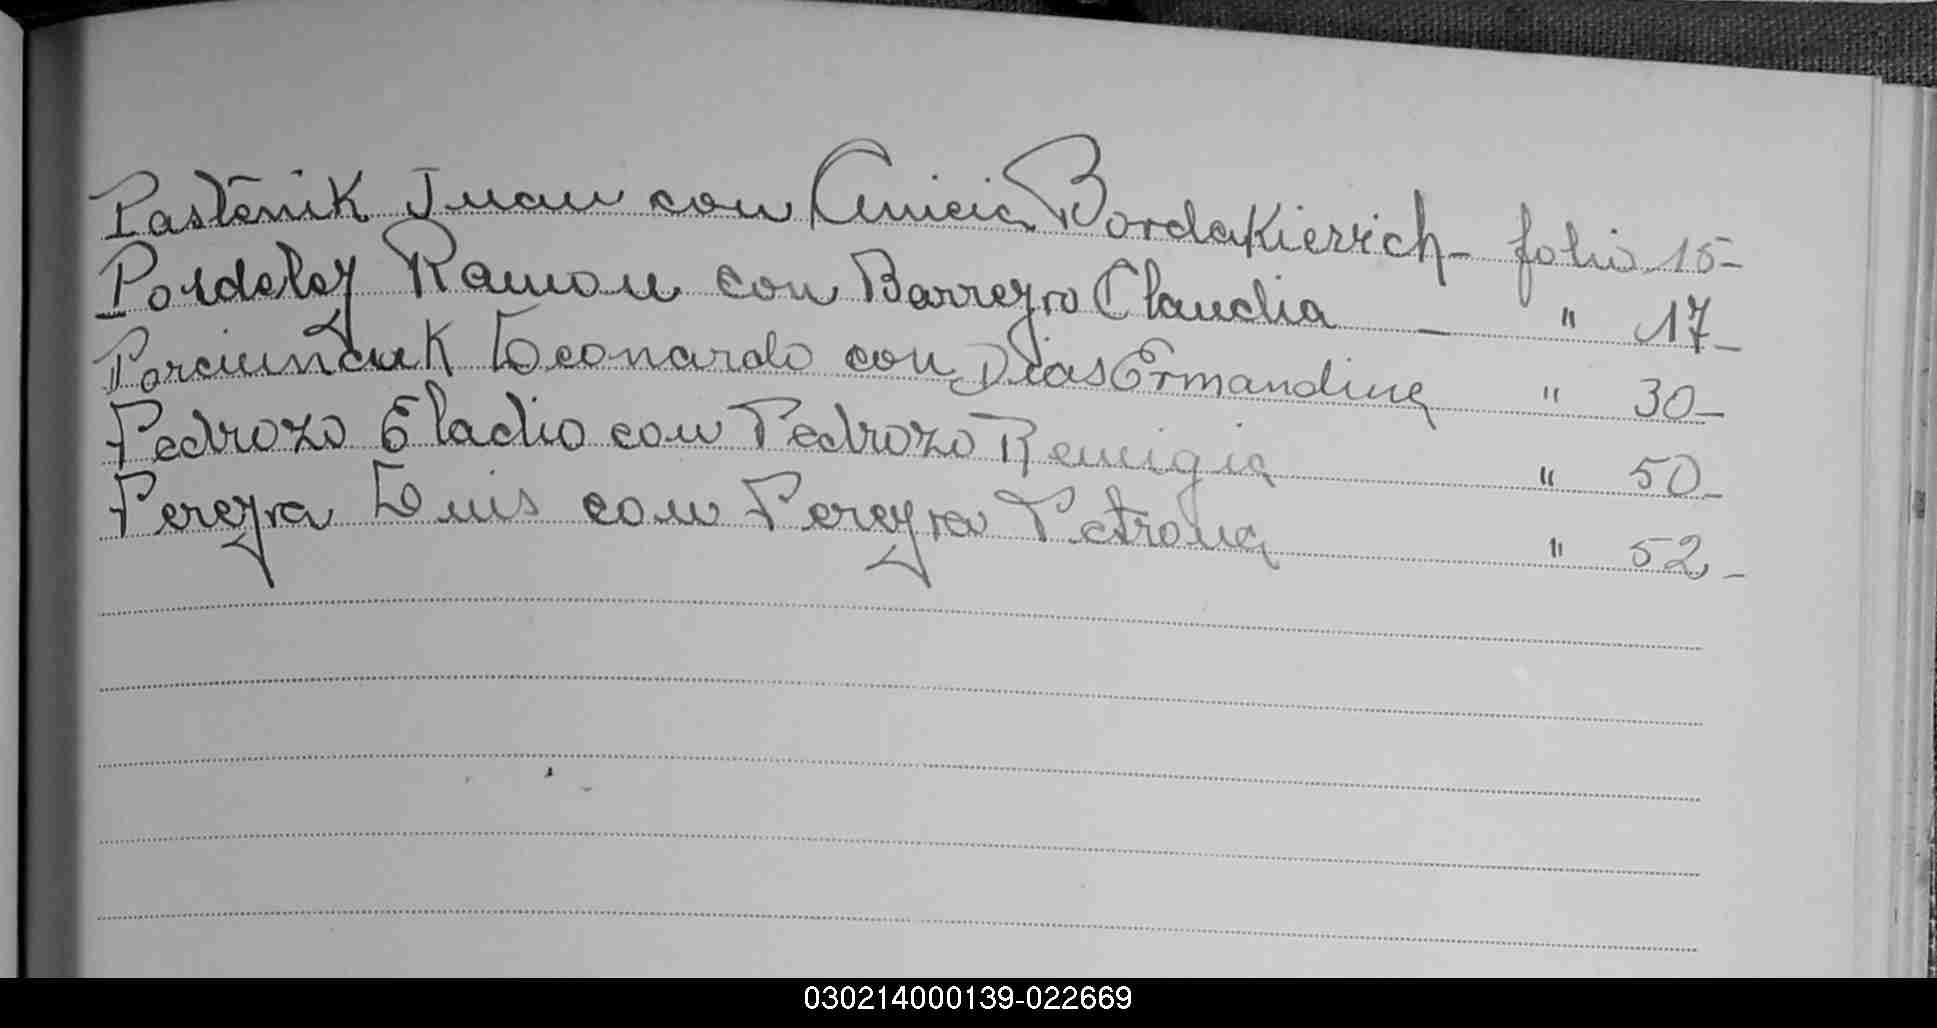 Pastenik Juan con Anicia Bordakievich - folio 15 -
Pordeley Ramon con Barreyro Claudia - " 17 -
Porciunduk Leonardo con Dias Ermandina " 30 -
Pedrozo Eladio con Pedrozo Remigia " 50 -
Pereyra Luis con Pereyra Petrona " 52 -
030214000139-022669